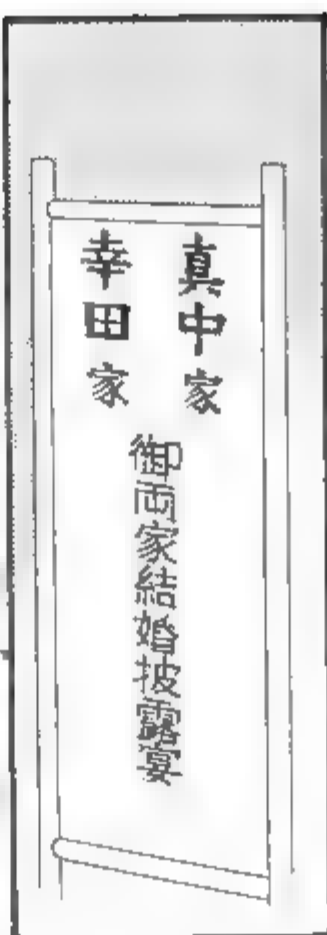 真中家
幸田家
御両家結婚披露宴